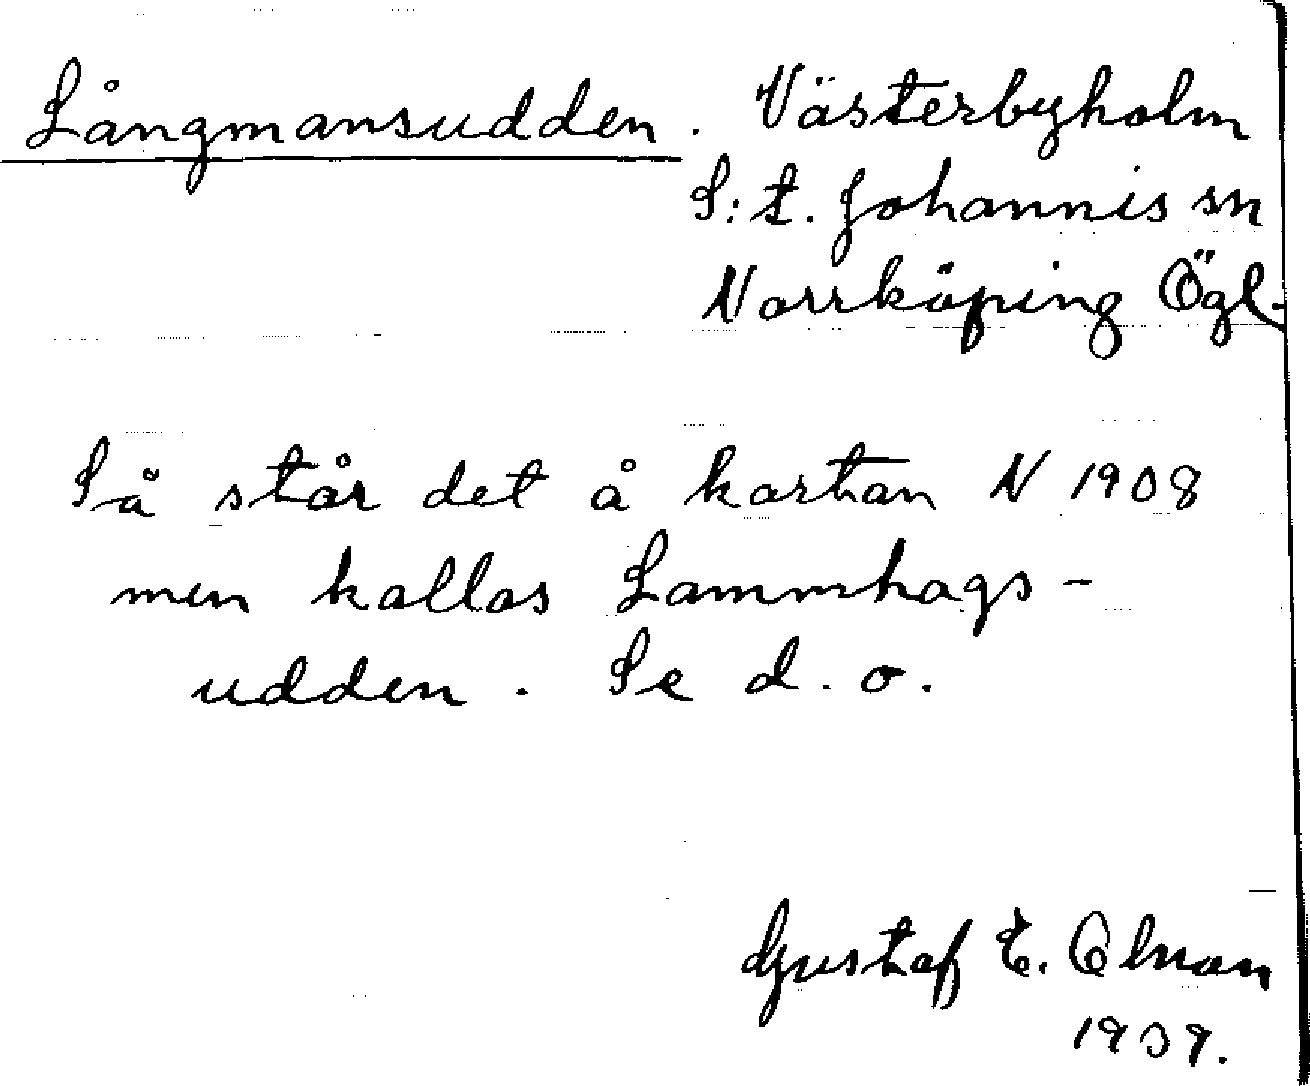 Långmansudden. Västerbyholm
S:t. Johannis sn
Norrköping Ögl.
Så står det å kartan N 1908
men kallas Lammhags-
udden. Se d. o.
Gustaf E.
1939.